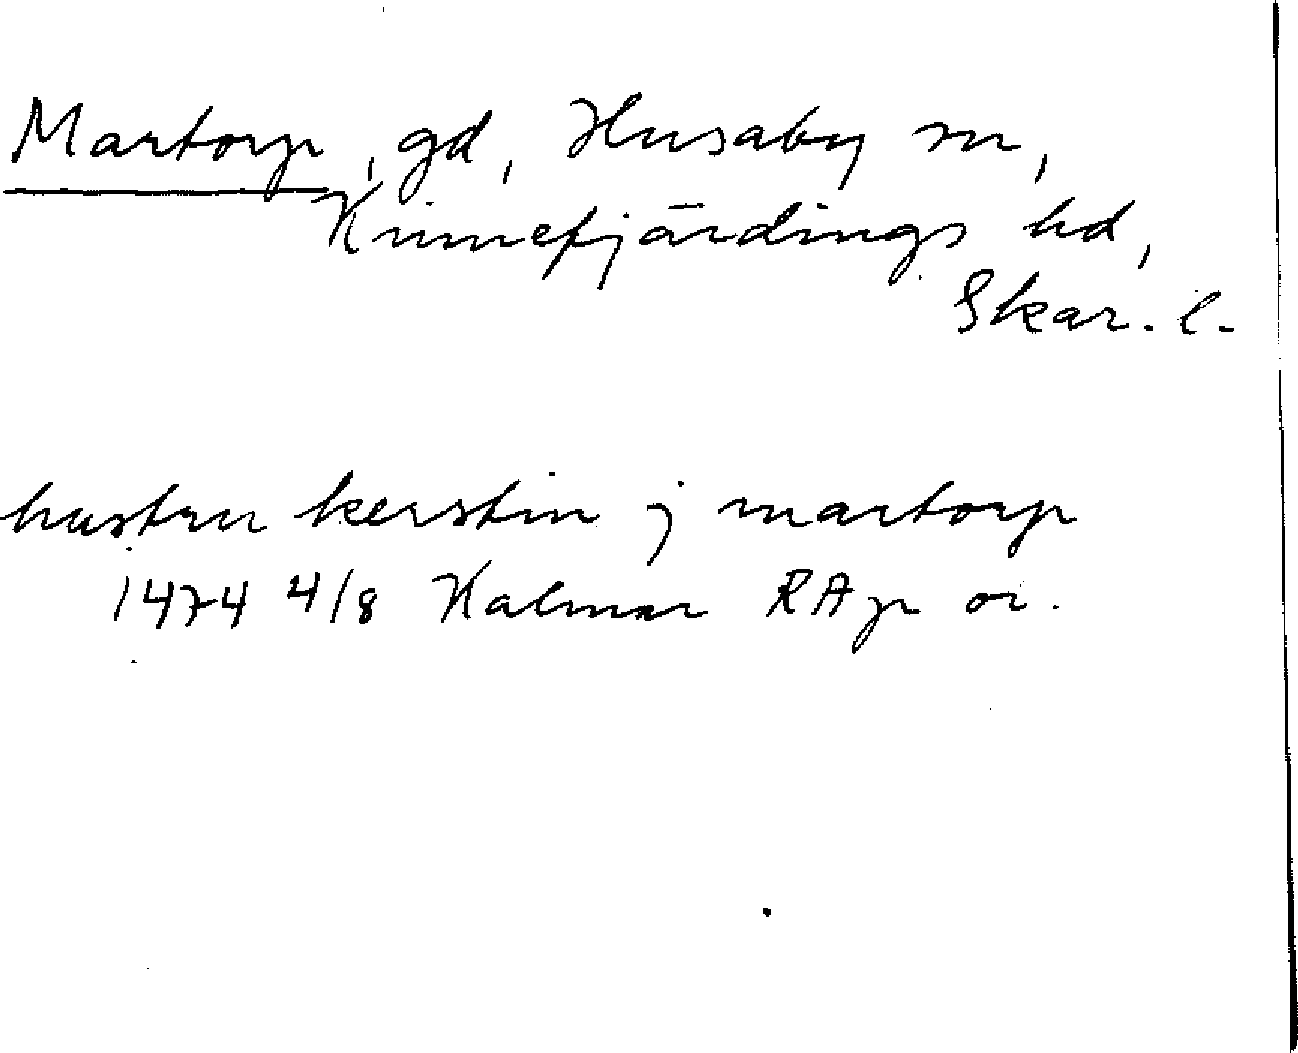 Martorp, gd, Husaby sn,
Kinnefjärdings hd,
Skar. l.
hustru kerstin j martorp
1474 4/8 Kalmar RAp or.